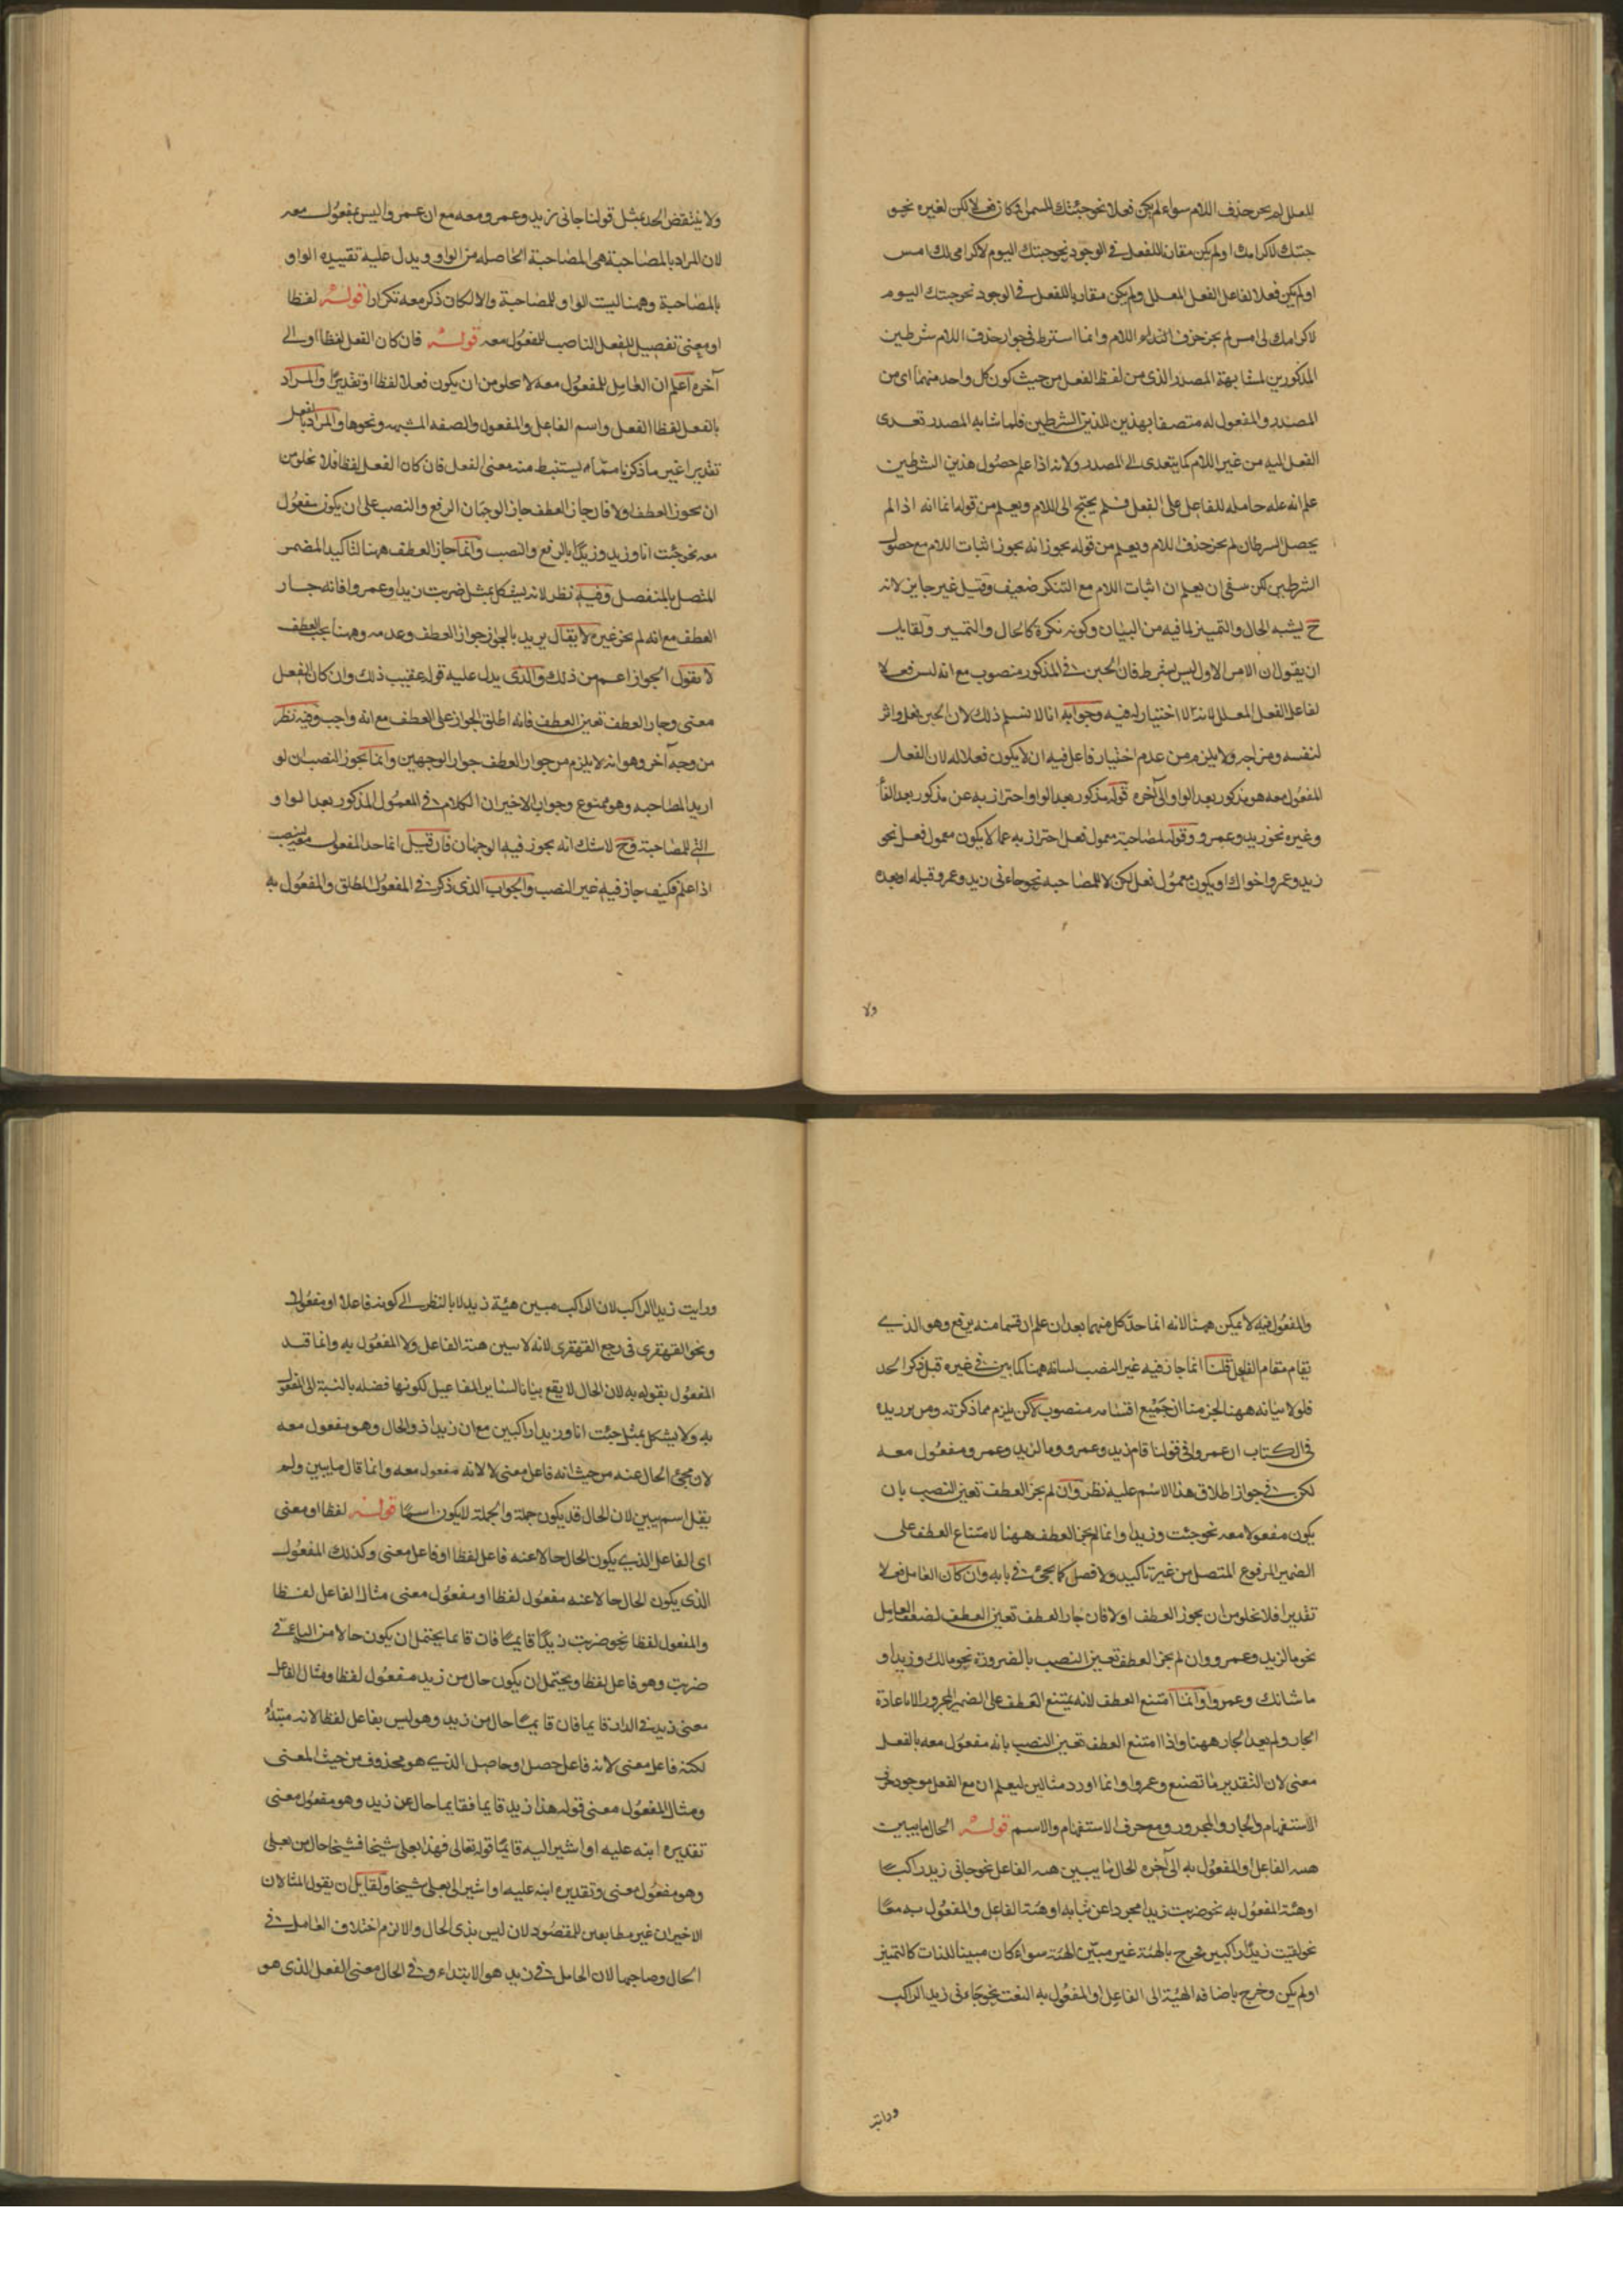 للعلل لم يجز حذف اللام سواء لم يكن فعلا نحو جئتك للسمن او كان فعلا لكن لغيره نحو
جئتك لاكرامك او لم يكن مقارنا للفعل في الوجود نحو جئتك اليوم لاكرامى لك امس
او لم يكن فعلا لفاعل الفعل المعلل ولم يكن مقارنا للفعل في الوجود نحو جئتك اليوم
لاكرامك لى امس لم يجز حذف اللام وانما اشترط في جواز حذف اللام شرطين
المذكورين لمشابهة المصدر الذى من لفظ الفعل من حيث كون كل واحد منهما اى من
المصدر والمفعول له متصفا بهذين الشرطين فلما شابه المصدر تعدى
الفعل اليه من غير اللام كما يتعدى الى المصدر ولانه اذا علم حصول هذين الشرطين
علم انه علة حاملة للفاعل على الفعل فلم يحتج الى اللام ويعلم من قوله انما انه اذا لم
يحصل الشرطان لم يجز حذف اللام ويعلم من قوله يجوز انه يجوز اثبات اللام مع حصول
الشرطين لكن ينبغى ان يعلم ان اثبات اللام مع التنكر ضعيف وقيل غير جايز لانه
ح يشبه الحال والتمييز لما فيه من البيان وكونه نكرة كالحال والتمييز ولقايل
ان يقول ان الامر الاول ليس بشرط فان الجبن في المذكور منصوب مع انه ليس فعلا
لفاعل الفعل المعلل لانه لا اختيار له فيه وجوابه انا لا نسلم ذلك لان الجبن فعل واثر
لنفسه ومزاجه ولا يلزم من عدم اختيار فاعل فيه ان لا يكون فعلا له لان الفعال
المفعول معه هو مذكور بعد الواو الى آخره قوله مذكور بعد الواو احتراز به عن مذكور بعد الفاء
وغيره نحو زيد وعمرو وقوله لمصاحبة معمول فعل احتراز به عما لا يكون معمول فعل نحو
زيد وعمرو اخواك او يكون معمول فعل لكن لا للمصاحبة نحو جاءنى زيد وعمرو قبله او بعده
ولا
ولا ينتقض الحد بمثل قولنا جانى زيد وعمرو معه مع ان عمروا ليس بمفعول معه
لان المراد بالمصاحبة هى المصاحبة الحاصلة من الواو ويدل عليه تقييده الواو
بالمصاحبة وههنا ليست الواو للمصاحبة والا لكان ذكر معه تكرارا قوله لفظا
او معنى تفصيل للفعل الناصب للمفعول معه قوله فان كان الفعل لفظا الى
آخره اعلم ان العامل للمفعول معه لا يخلو من ان يكون فعلا لفظا او تقديرا والمراد
بالفعل لفظا الفعل واسم الفاعل والمفعول والصفه المشبهه ونحوها والمراد بالفعل
تقديرا غير ما ذكرنا مما يستنبط منه معنى الفعل فان كان الفعل لفظا فلا يخلو من
ان يجوز العطف اولا فان جاز العطف جاز الوجهان الرفع والنصب على ان يكون مفعول
معه نحو جئت انا وزيد وزيدا بالرفع والنصب وانما جاز العطف ههنا لتاكيد المضمر
المتصل بالمنفصل وفيه نظر لانه يشكل بمثل ضربت زيدا وعمروا فانه جاز
العطف مع انه لم يجز غيره لا يقال يريد بالجواز جواز العطف وعدمه وههنا يجب العطف
لا نقول الجواز اعم من ذلك والذى يدل عليه قوله عقيب ذلك وان كان الفعل
معنى وجاز العطف تعين العطف فانه اطلق الجواز على العطف مع انه واجب وفيه نظر
من وجه آخر وهو انه لا يلزم من جواز العطف جواز الوجهين وانما يجوز النصب ان لو
اريد المصاحبه وهو ممنوع وجواب الاخير ان الكلام في المعمول المذكور بعد الواو
التى للمصاحبة وح لاشك انه يجوز فيه الوجهان فان قيل انما حد المفعول معه لينصب
اذا علم فكيف جاز فيه غير النصب والجواب الذى ذكر في المفعول المطلق والمفعول به
والمفعول فيه لا يمكن ههنا لانه انما حد كل منهما بعد ان علم ان قسما منه يرفع وهو الذى
يقام مقام الفاعل قلنا انما جاز فيه غير النصب لبيانه ههنا كما بين في غيره قبل ذكر الحد
فلولا بيانه ههنا لجزمنا ان جميع اقسامه منصوب لكن يلزم مما ذكرته ومن يريده
في الكتاب ان عمروا في قولنا قام زيد وعمرو وما لزيد وعمرو مفعول معه
لكن في جواز اطلاق هذا الاسم عليه نظر وان لم يجز العطف تعين النصب بان
يكون مفعولا معه نحو جئت وزيدا وانما لم يجز العطف ههنا لامتناع العطف على
الضمير المرفوع المتصل من غير تاكيد ولا فصل كما يجئ في بابه وان كان العامل فعلا
تقديرا فلا يخلو من ان يجوز العطف اولا فان جاز العطف تعين العطف لضعف العامل
نحو ما لزيد وعمرو وان لم يجز العطف تعين النصب بالضرورة نحو مالك وزيدا و
ما شانك وعمروا وانما امتنع العطف لانه يمتنع العطف على الضمير المجرور الا باعادة
الجار ولم يعد الجار ههنا واذا امتنع العطف تعين النصب بانه مفعول معه بالفعل
معنى لان التقدير ما تصنع وعمروا وانما اورد مثالين ليعلم ان مع الفعل موجود حرف
الاستفهام والجار والمجرور ومع حرف الاستفهام والاسم قوله الحال ما يبين
هيئة الفاعل او المفعول به الى آخره الحال ما يبين هيئة الفاعل نحو جانى زيد راكبا
او هيئة المفعول به نحو ضربت زيدا مجردا عن ثيابه او هيئة الفاعل والمفعول به معا
نحو لقيت زيدا راكبين يخرج بالهيئة غير مبين الهيئة سواء كان مبينا للذات كالتمييز
او لم يكن وخرج باضافه الهيئة الى الفاعل او المفعول به النعت نحو جاءنى زيد الراكب
ورايت
ورايت زيدا الراكب لان الراكب مبين هيئة زيد لا بالنظر الى كونه فاعلا او مفعولا
ونحو القهقرى فى رجع القهقرى لانه لا يبين هيئة الفاعل ولا المفعول به وانما قيد
المفعول بقوله به لان الحال لا يقع بيانا لساير المفاعيل لكونها فضله بالنسبة الى المفعول
به ولا يشكل بمثل جئت انا وزيدا راكبين مع ان زيدا ذو الحال وهو مفعول معه
لان مجئ الحال عنه من حيث انه فاعل معنى لا لانه مفعول معه وانما قال ما يبين ولم
يقل اسم يبين لان الحال قد يكون جملة والجملة لا يكون اسما قوله لفظا او معنى
اى الفاعل الذى يكون الحال حالا عنه فاعل لفظا او فاعل معنى وكذلك المفعول
الذى يكون الحال حالا عنه مفعول لفظا او مفعول معنى مثال الفاعل لفظا
والمفعول لفظا نحو ضربت زيدا قايما فان قايما يحتمل ان يكون حالا من التاء في
ضربت وهو فاعل لفظا ويحتمل ان يكون حال من زيد مفعول لفظا ومثال الفاعل
معنى زيد في الدار قايما فان قايما حال من زيد وهو ليس بفاعل لفظا لانه مبتدأ
لكنه فاعل معنى لانه فاعل حصل وحاصل الذى هو محذوف من حيث المعنى
ومثال المفعول معنى قوله هذا زيد قايما فقايما حال عن زيد وهو مفعول معنى
تقديره انبه عليه او اشير اليه قايما قوله تعالى فهذا بعلى شيخا فشيخا حال من بعلى
وهو مفعول معنى وتقديره انبه عليه او اشير الى بعلى شيخا ولقايل ان يقول المثالان
الاخيران غير مطابقين للمقصود لان ليس بذى الحال والا لزم اختلاف العامل في
الحال وصاحبها لان العامل في زيد هو الابتداء وفي الحال معنى الفعل الذى هو